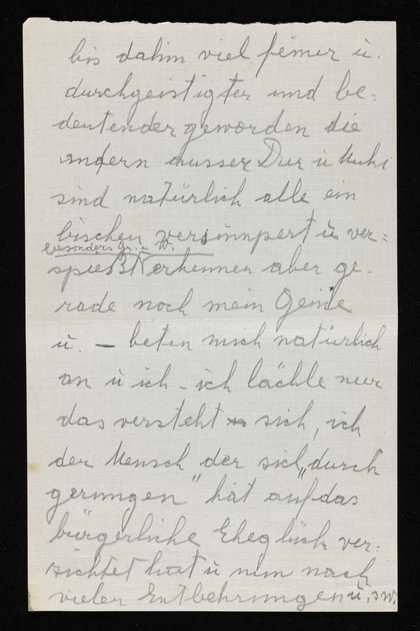 bis dahin viel feiner u.
durchgeistigter und be=
deutender geworden die
andern ausser Dir u Muki
sind natürlich alle ein
bischen versimpert u ver=
besonders Gr. u W.
spießt erkennen aber ge-
rade noch mein Genie
u. – beten mich natürlich
an u ich – ich lächle nur
das versteht sich, ich
der Mensch der sich „durch
gerungen" hat auf das
bürgerliche Eheglück ver=
zichtet hat u nun nach
vielen Entbehrungen u.s.w.